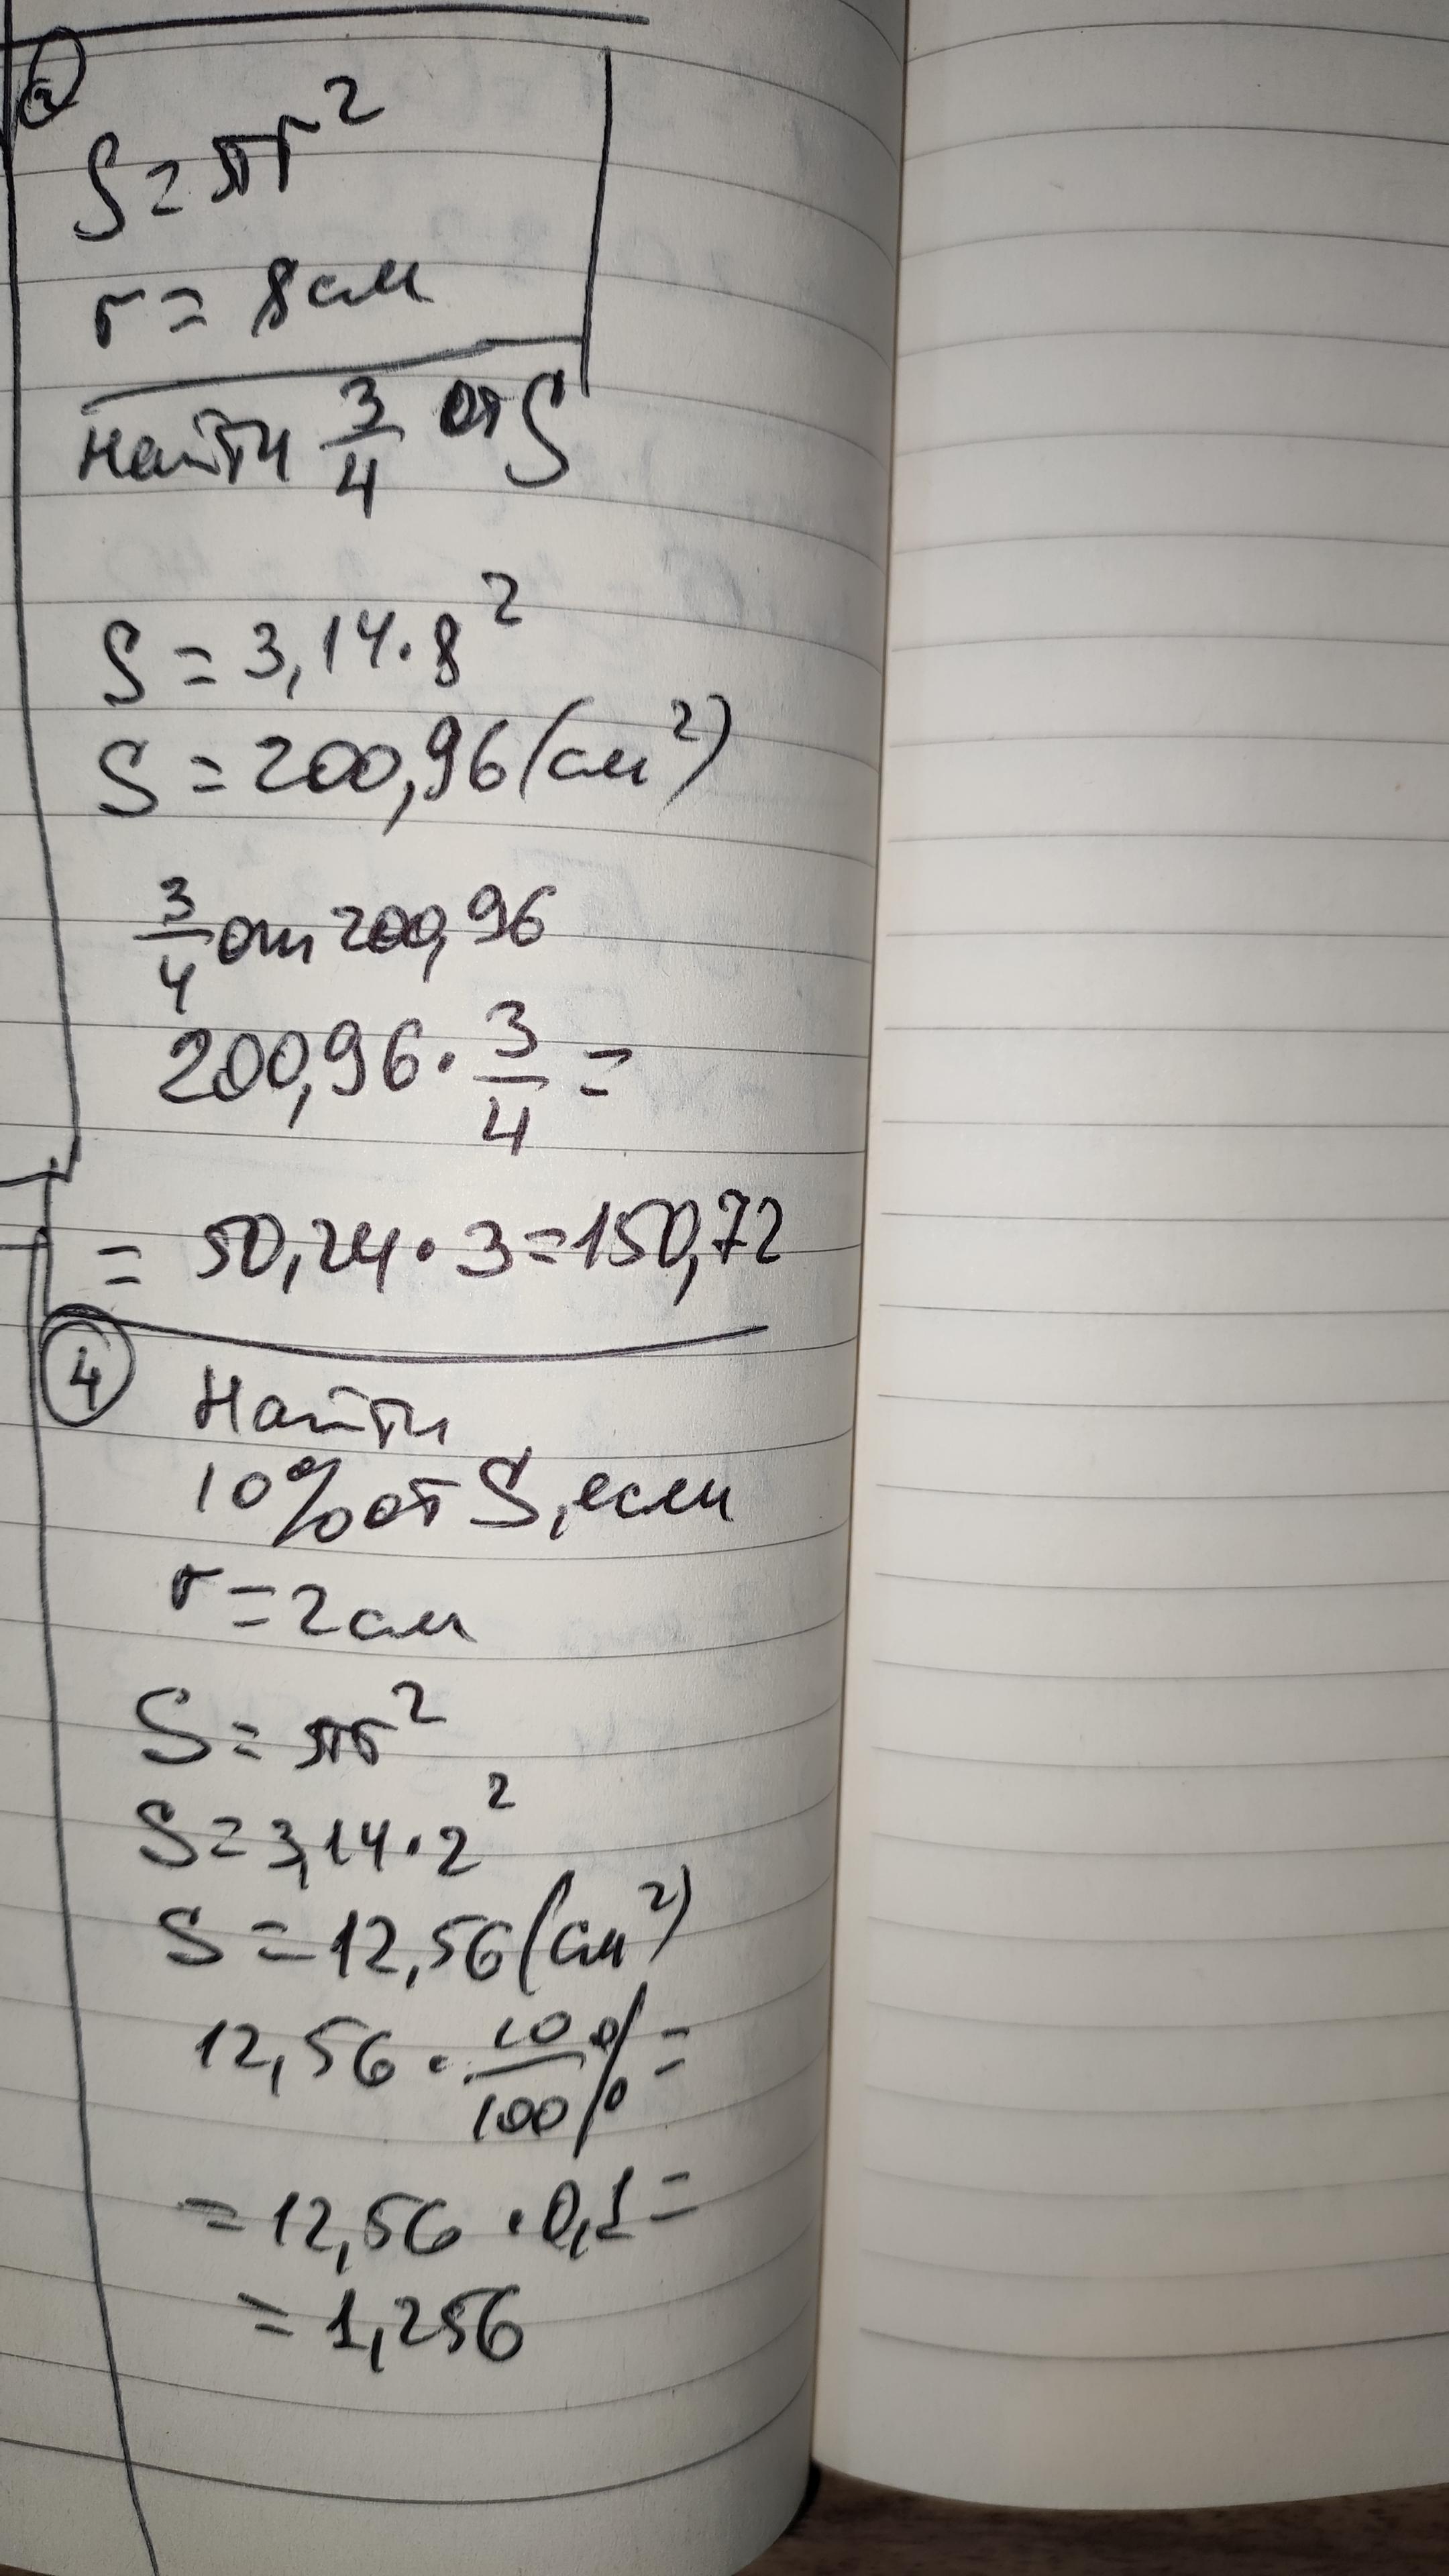 S = πr²
r = 8 см
Найти 3/4 от S
S = 3,14 · 8²
S = 200,96 (см²)
3/4 от 200,96
200,96 · 3/4 =
= 50,24 · 3 = 150,72
4
Найти
10% от S, если
r = 2 см
S = πr²
S = 3,14 · 2²
S = 12,56 (см²)
12,56 · 10%/100% =
= 12,56 · 0,1 =
= 1,256